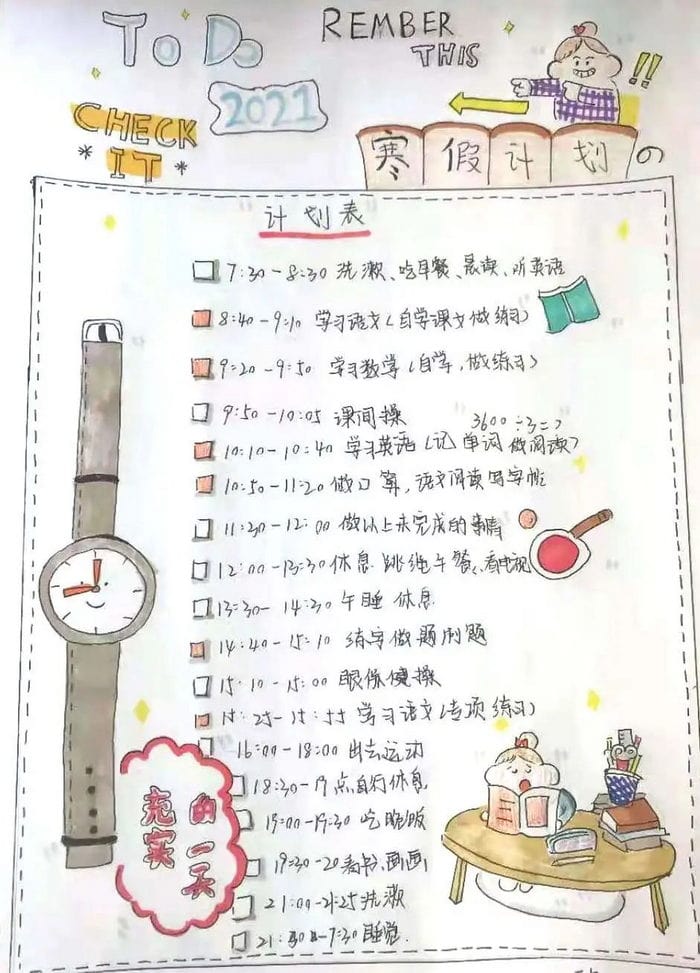 TO DO
REMBER
THIS
2021
CHECK
IT
!!
寒假计划の
计划表
7:30-8:30 洗漱、吃早餐、晨读、听英语
8:40-9:10 学习语文(自学课文做练习)
9:20-9:50 学习数学(自学,做练习)
9:50-10:05 课间操
3600÷3=?
10:10-10:40 学习英语(记单词做阅读)
10:50-11:20 做口算,语文阅读写字帖
11:30-12:00 做以上未完成的事情
12:00-13:30 休息 跳绳午餐、看电视
13:30-14:30 午睡 休息
14:40-15:10 练字做题刷题
15:10-15:00 眼保健操
15:25-15:55 学习语文(专项练习)
16:00-18:00 出去运动
18:30-19点自行休息
19:00-19:30 吃晚饭
19:30-20看书、画画
21:00-21:25洗漱
21:30-7:30睡觉.
充实
的一天